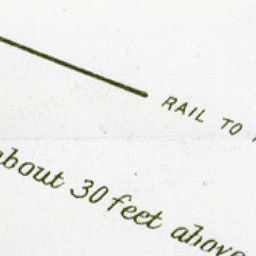 RAIL TO
about 30 feet above